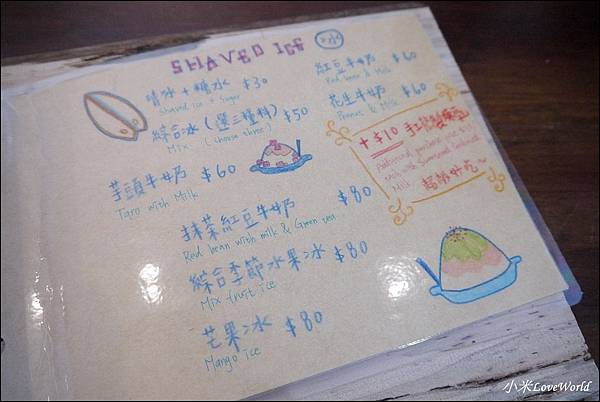 SHAVED ICE 冰
清冰+糖水 $30
Shaved ice + Sugar
綜合冰(選三種料) $50
Mix (choose three)
芋頭牛奶 $60
Taro with Milk
抹茶紅豆牛奶 $80
Red bean with milk & Green tea
綜合季節水果冰 $80
Mix fruit ice
芒果冰 $80
Mango ice
紅豆牛奶 $60
Red bean & Milk
花生牛奶 $60
Peanut & Milk
+$10 手工
Milk
超級好吃~
小米LoveWorld